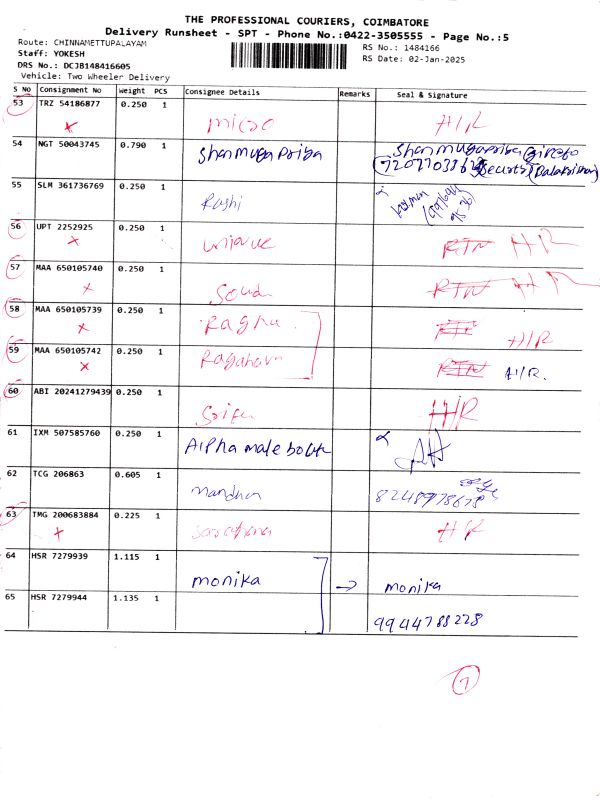 THE PROFESSIONAL COURIERS, COIMBATORE
Delivery Runsheet - SPT - Phone No.:0422-3505555 - Page No.:5
Route: CHINNAMETTUPALAYAM
Staff: YOKESH
DRS No.: DCJB148416605
Vehicle: Two Wheeler Delivery
RS No.: 1484166
RS Date: 02-Jan-2025
S No Consignment No Weight PCS Consignee Details Remarks Seal & Signature
53 TRZ 54186877 0.250 1 micro H/R
54 NGT 50043745 0.790 1 Shanmuga Priba Shanmugapriba
Security
55 SLM 361736769 0.250 1 Rashi
56 UPT 2252925 0.250 1 unique RTN H/R
57 MAA 650105740 0.250 1 RTN H/R
58 MAA 650105739 0.250 1 Raghu H/R
59 MAA 650105742 0.250 1 RTN H/R.
60 ABI 20241279439 0.250 1 H/R
61 IXM 507585760 0.250 1 Alpha male
62 TCG 206863 0.605 1 8248978678
63 TMG 200683884 0.225 1 H/R
64 HSR 7279939 1.115 1 monika → monika
65 HSR 7279944 1.135 1 9944788228
7